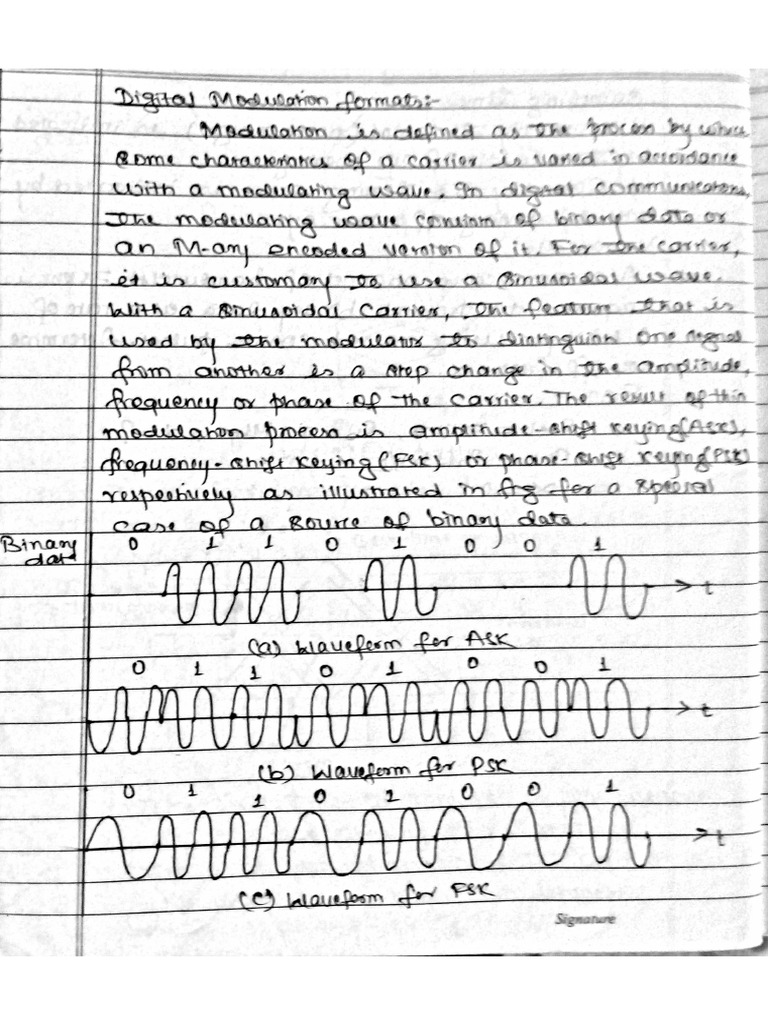 Digital Modulation formats:-
Modulation is defined as the process by which
some characteristics of a carrier is varied in accordance
with a modulating wave. In digital communications,
the modulating wave consists of binary data or
an M-ary encoded version of it. For the carrier,
it is customary to use a sinusoidal wave.
With a sinusoidal carrier, the feature that is
used by the modulator to distinguish one signal
from another is a step change in the amplitude,
frequency or phase of the carrier. The result of this
modulation process is amplitude-shift keying (ASK),
frequency-shift keying (FSK) or phase-shift keying (PSK)
respectively as illustrated in fig for a special
case of a source of binary data.
Binary data 0 1 1 0 1 0 0 1
t
(a) Waveform for ASK
0 1 1 0 1 0 0 1
t
(b) Waveform for PSK
0 1 1 0 1 0 0 1
t
(c) Waveform for FSK
Signature